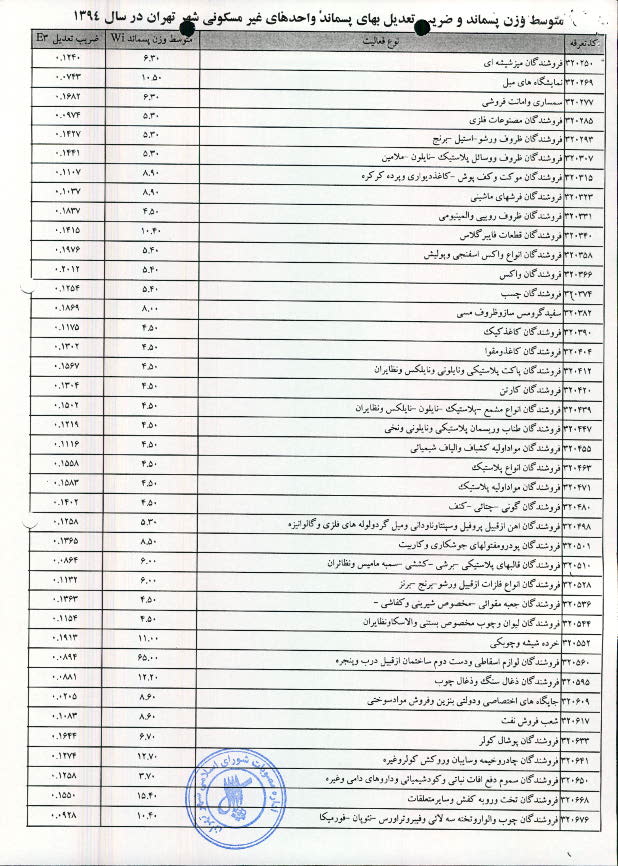 متوسط وزن پسماند و ضریب تعدیل بهای پسماند واحدهای غیر مسکونی شهر تهران در سال ۱۳۹۴
کدتعرفه نوع فعالیت متوسط وزن پسماند Wi ضریب تعدیل E۳
۳۲۰۲۵۰ فروشندگان میزشیشه ای ۶.۳۰ ۰.۱۲۴۰
۳۲۰۲۶۹ نمایشگاه های مبل ۱۰.۵۰ ۰.۰۷۴۳
۳۲۰۲۷۷ سمساری وامانت فروشی ۶.۳۰ ۰.۱۶۸۲
۳۲۰۲۸۵ فروشندگان مصنوعات فلزی ۵.۳۰ ۰.۰۹۷۴
۳۲۰۲۹۳ فروشندگان ظروف ورشو-استیل -برنج ۵.۳۰ ۰.۱۴۲۷
۳۲۰۳۰۷ فروشندگان ظروف ووسائل پلاستیک -نایلون -ملامین ۵.۳۰ ۰.۱۴۴۱
۳۲۰۳۱۵ فروشندگان موکت وکف پوش -کاغذدیواری وپرده کرکره ۸.۹۰ ۰.۱۱۰۷
۳۲۰۳۲۳ فروشندگان فرشهای ماشینی ۸.۹۰ ۰.۱۰۳۷
۳۲۰۳۳۱ فروشندگان ظروف روییی والمینیومی ۴.۵۰ ۰.۱۸۳۷
۳۲۰۳۴۰ فروشندگان قطعات فایبرگلاس ۱۰.۴۰ ۰.۱۴۱۵
۳۲۰۳۵۸ فروشندگان انواع واکس اسفنجی وپولیش ۵.۴۰ ۰.۱۹۷۶
۳۲۰۳۶۶ فروشندگان واکس ۵.۴۰ ۰.۲۰۱۲
۳۲۰۳۷۴ فروشندگان چسب ۵.۴۰ ۰.۱۲۵۴
۳۲۰۳۸۲ سفیدگرومس سازوظروف مسی ۸.۰۰ ۰.۱۸۶۹
۳۲۰۳۹۰ فروشندگان کاغذکیک ۴.۵۰ ۰.۱۱۷۵
۳۲۰۴۰۴ فروشندگان کاغذومقوا ۴.۵۰ ۰.۱۳۰۲
۳۲۰۴۱۲ فروشندگان پاکت پلاستیکی ونایلونی ونایلکس ونظایران ۴.۵۰ ۰.۱۵۶۷
۳۲۰۴۲۰ فروشندگان کارتن ۴.۵۰ ۰.۱۳۰۴
۳۲۰۴۳۹ فروشندگان انواع مشمع -پلاستیک -نایلون -نایلکس ونظایران ۴.۵۰ ۰.۱۵۰۲
۳۲۰۴۴۷ فروشندگان طناب وریسمان پلاستیکی ونایلونی ونخی ۴.۵۰ ۰.۱۲۱۹
۳۲۰۴۵۵ فروشندگان مواداولیه کشباف والیاف شیمیائی ۴.۵۰ ۰.۱۱۱۶
۳۲۰۴۶۳ فروشندگان انواع پلاستیک ۴.۵۰ ۰.۱۵۵۸
۳۲۰۴۷۱ فروشندگان مواداولیه پلاستیک ۴.۵۰ ۰.۱۵۸۳
۳۲۰۴۸۰ فروشندگان گونی -چتائی -کنف ۴.۵۰ ۰.۱۴۰۲
۳۲۰۴۹۸ فروشندگان اهن ازقبیل پروفیل وسپنتاوناودانی ومیل گردولوله های فلزی وگالوانیزه ۵.۳۰ ۰.۱۲۵۸
۳۲۰۵۰۱ فروشندگان پودرومفتولهای جوشکاری وکاربیت ۸.۵۰ ۰.۱۳۶۵
۳۲۰۵۱۰ فروشندگان قالبهای پلاستیکی -برشی -کششی -سمبه مامیس ونظائران ۶.۰۰ ۰.۰۸۶۴
۳۲۰۵۲۸ فروشندگان انواع فلزات ازقبیل ورشو-برنج -برنز ۶.۰۰ ۰.۱۱۳۲
۳۲۰۵۳۶ فروشندگان جعبه مقوائی -مخصوص شیرینی وکفاشی - ۴.۵۰ ۰.۱۳۶۳
۳۲۰۵۴۴ فروشندگان لیوان وچوب مخصوص بستنی والاسکاونظایران ۴.۵۰ ۰.۱۱۵۴
۳۲۰۵۵۲ خرده شیشه وچوبکی ۱۱.۰۰ ۰.۱۹۱۳
۳۲۰۵۶۰ فروشندگان لوازم اسقاطی ودست دوم ساختمان ازقبیل درب وپنجره ۶۵.۰۰ ۰.۰۸۹۴
۳۲۰۵۹۵ فروشندگان ذغال سنگ وذغال چوب ۱۲.۲۰ ۰.۰۸۸۱
۳۲۰۶۰۹ جایگاه های اختصاصی ودولتی بنزین وفروش موادسوختی ۸.۶۰ ۰.۰۲۰۵
۳۲۰۶۱۷ شعب فروش نفت ۸.۶۰ ۰.۱۰۸۳
۳۲۰۶۳۳ فروشندگان پوشال کولر ۶.۷۰ ۰.۱۶۴۴
۳۲۰۶۴۱ فروشندگان چادروخیمه وسایبان وروکش کولروغیره ۱۲.۷۰ ۰.۱۲۷۴
۳۲۰۶۵۰ فروشندگان سموم دفع افات نباتی وکودشیمیائی وداروهای دامی وغیره ۳.۷۰ ۰.۱۲۵۸
۳۲۰۶۶۸ فروشندگان تخت ورویه کفش وسایرمتعلقات ۱۵.۴۰ ۰.۱۵۵۰
۳۲۰۶۷۶ فروشندگان چوب والواروتخته سه لائی وفیبروتراورس -نئوپان -فورمیکا ۱۰.۴۰ ۰.۰۹۲۸
اداره مصوبات شورای اسلامی شهر تهران